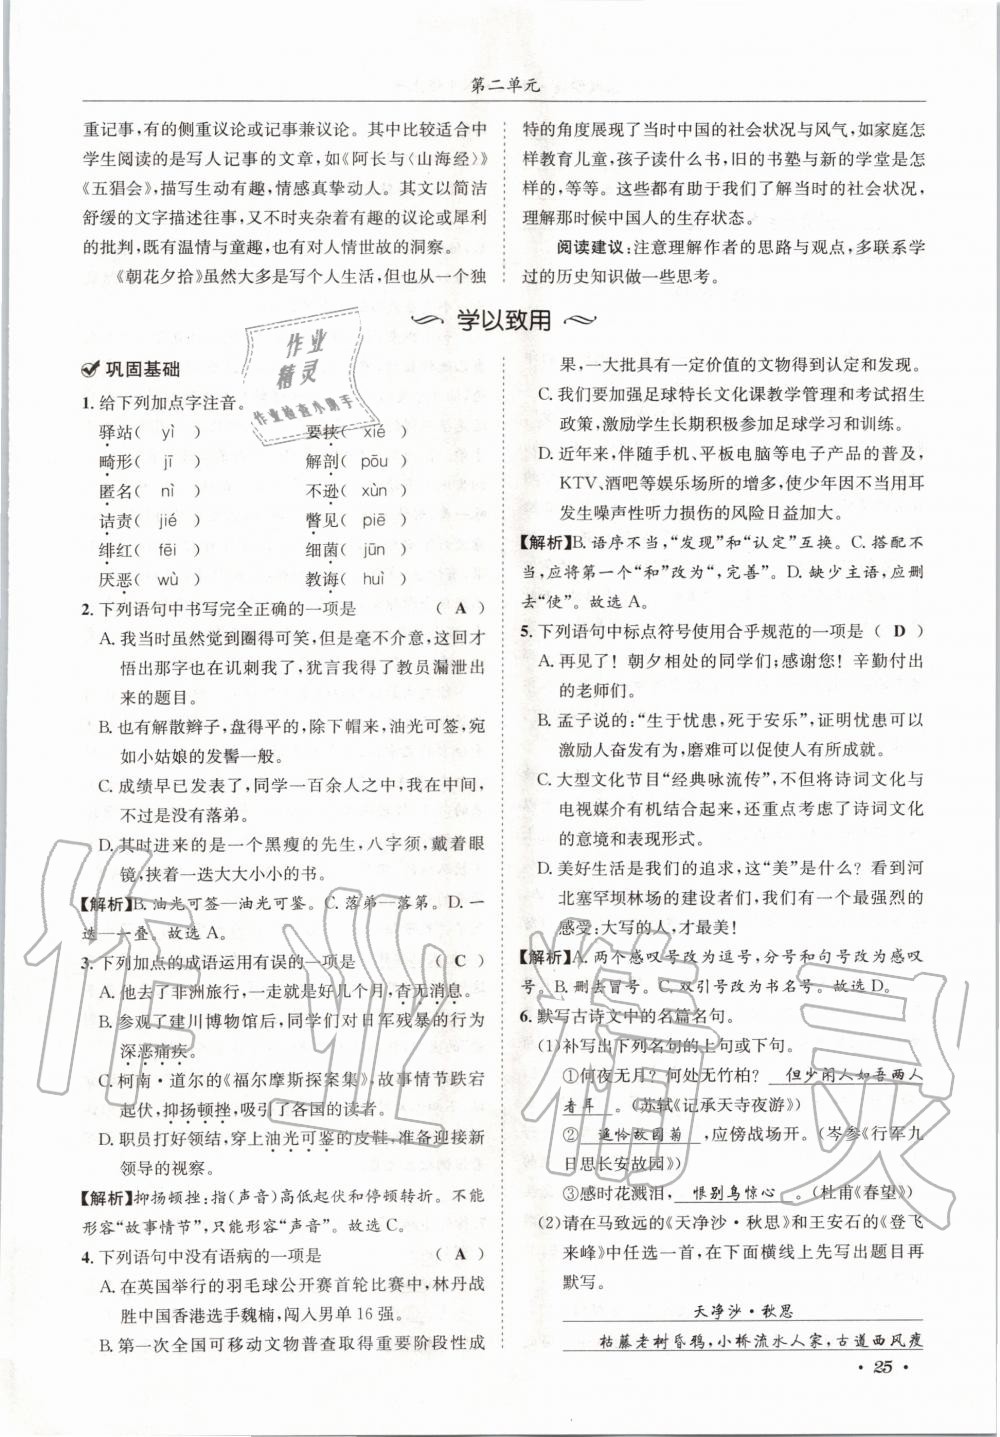 第二单元
重记事,有的侧重议论或记事兼议论。其中比较适合中
学生阅读的是写人记事的文章,如《阿长与〈山海经〉》
《五猖会》,描写生动有趣,情感真挚动人。其文以简洁
舒缓的文字描述往事,又不时夹杂着有趣的议论或犀利
的批判,既有温情与童趣,也有对人情世故的洞察。
《朝花夕拾》虽然大多是写个人生活,但也从一个独
特的角度展现了当时中国的社会状况与风气,如家庭怎
样教育儿童,孩子读什么书,旧的书塾与新的学堂是怎
样的,等等。这些都有助于我们了解当时的社会状况,
理解那时候中国人的生存状态。
阅读建议:注意理解作者的思路与观点,多联系学
过的历史知识做一些思考。
学以致用
作业
精灵
作业检查小助手
巩固基础
1. 给下列加点字注音。
驿站( yì ) 要挟( xié )
畸形( jī ) 解剖( pōu )
匿名( nì ) 不逊( xùn )
诘责( jié ) 瞥见( piē )
绯红( fēi ) 细菌( jūn )
厌恶( wù ) 教诲( huì )
2. 下列语句中书写完全正确的一项是 ( A )
A. 我当时虽然觉到圈得可笑,但是毫不介意,这回才
悟出那字也在讥刺我了,犹言我得了教员漏泄出
来的题目。
B. 也有解散辫子,盘得平的,除下帽来,油光可签,宛
如小姑娘的发髻一般。
C. 成绩早已发表了,同学一百余人之中,我在中间,
不过是没有落弟。
D. 其时进来的是一个黑瘦的先生,八字须,戴着眼
镜,挟着一迭大大小小的书。
【解析】B. 油光可签—油光可鉴。C. 落弟—落第。D. 一
迭—一叠。故选 A。
3. 下列加点的成语运用有误的一项是 ( C )
A. 他去了非洲旅行,一走就是好几个月,杳无消息。
B. 参观了建川博物馆后,同学们对日军残暴的行为
深恶痛疾。
C. 柯南·道尔的《福尔摩斯探案集》,故事情节跌宕
起伏,抑扬顿挫,吸引了各国的读者。
D. 职员打好领结,穿上油光可鉴的皮鞋,准备迎接新
领导的视察。
【解析】抑扬顿挫:指(声音)高低起伏和停顿转折。不能
形容“故事情节”,只能形容“声音”。故选 C。
4. 下列语句中没有语病的一项是 ( A )
A. 在英国举行的羽毛球公开赛首轮比赛中,林丹战
胜中国香港选手魏楠,闯入男单 16 强。
B. 第一次全国可移动文物普查取得重要阶段性成
果,一大批具有一定价值的文物得到认定和发现。
C. 我们要加强足球特长文化课教学管理和考试招生
政策,激励学生长期积极参加足球学习和训练。
D. 近年来,伴随手机、平板电脑等电子产品的普及,
KTV、酒吧等娱乐场所的增多,使少年因不当用耳
发生噪声性听力损伤的风险日益加大。
【解析】B. 语序不当,“发现”和“认定”互换。C. 搭配不
当,应将第一个“和”改为“,完善”。D. 缺少主语,应删
去“使”。故选 A。
5. 下列语句中标点符号使用合乎规范的一项是 ( D )
A. 再见了!朝夕相处的同学们;感谢您!辛勤付出
的老师们。
B. 孟子说的:“生于忧患,死于安乐”,证明忧患可以
激励人奋发有为,磨难可以促使人有所成就。
C. 大型文化节目“经典咏流传”,不但将诗词文化与
电视媒介有机结合起来,还重点考虑了诗词文化
的意境和表现形式。
D. 美好生活是我们的追求,这“美”是什么?看到河
北塞罕坝林场的建设者们,我们有一个最强烈的
感受:大写的人,才最美!
【解析】A. 两个感叹号改为逗号,分号和句号改为感叹
号。B. 删去冒号。C. 双引号改为书名号。故选 D。
6. 默写古诗文中的名篇名句。
(1)补写出下列名句的上句或下句。
①何夜无月?何处无竹柏?但少闲人如吾两人
者耳。(苏轼《记承天寺夜游》)
②遥怜故园菊,应傍战场开。(岑参《行军九
日思长安故园》)
③感时花溅泪,恨别鸟惊心。(杜甫《春望》)
(2)请在马致远的《天净沙·秋思》和王安石的《登飞
来峰》中任选一首,在下面横线上先写出题目再
默写。
天净沙·秋思
枯藤老树昏鸦,小桥流水人家,古道西风瘦
· 25 ·
作业精灵